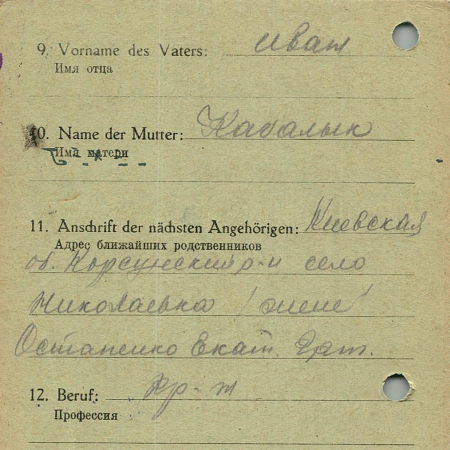 9. Vorname des Vaters: Иван
Имя отца
10. Name der Mutter: Кабалык
Имя матери
11. Anschrift der nächsten Angehörigen: Киевская
Адрес ближайших родственников
об. Корсунский р-н село
Николаевка /жене/
Остапенко Екат. Грт.
12. Beruf: кр-н
Профессия